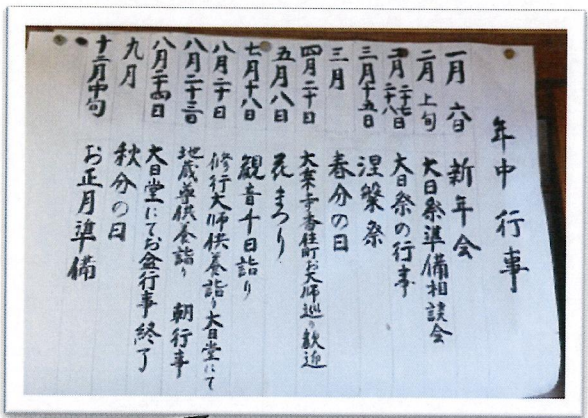 年中行事
一月 六日 新年会
二月 上旬 大日祭準備相談会
二月 二十七 二十八日 大日祭の行事
三月十五日 涅槃祭
三月 春分の日
四月二十日 大乗寺香住町お大師巡り歓迎
五月八日 花まつり
七月十八日 観音千日詣り
八月二十日 修行大師供養詣り大日堂にて
八月二十三日 地蔵尊供養詣り 朝行事
八月二十四日 大日堂にてお盆行事終了
九月 秋分の日
十二月中旬 お正月準備